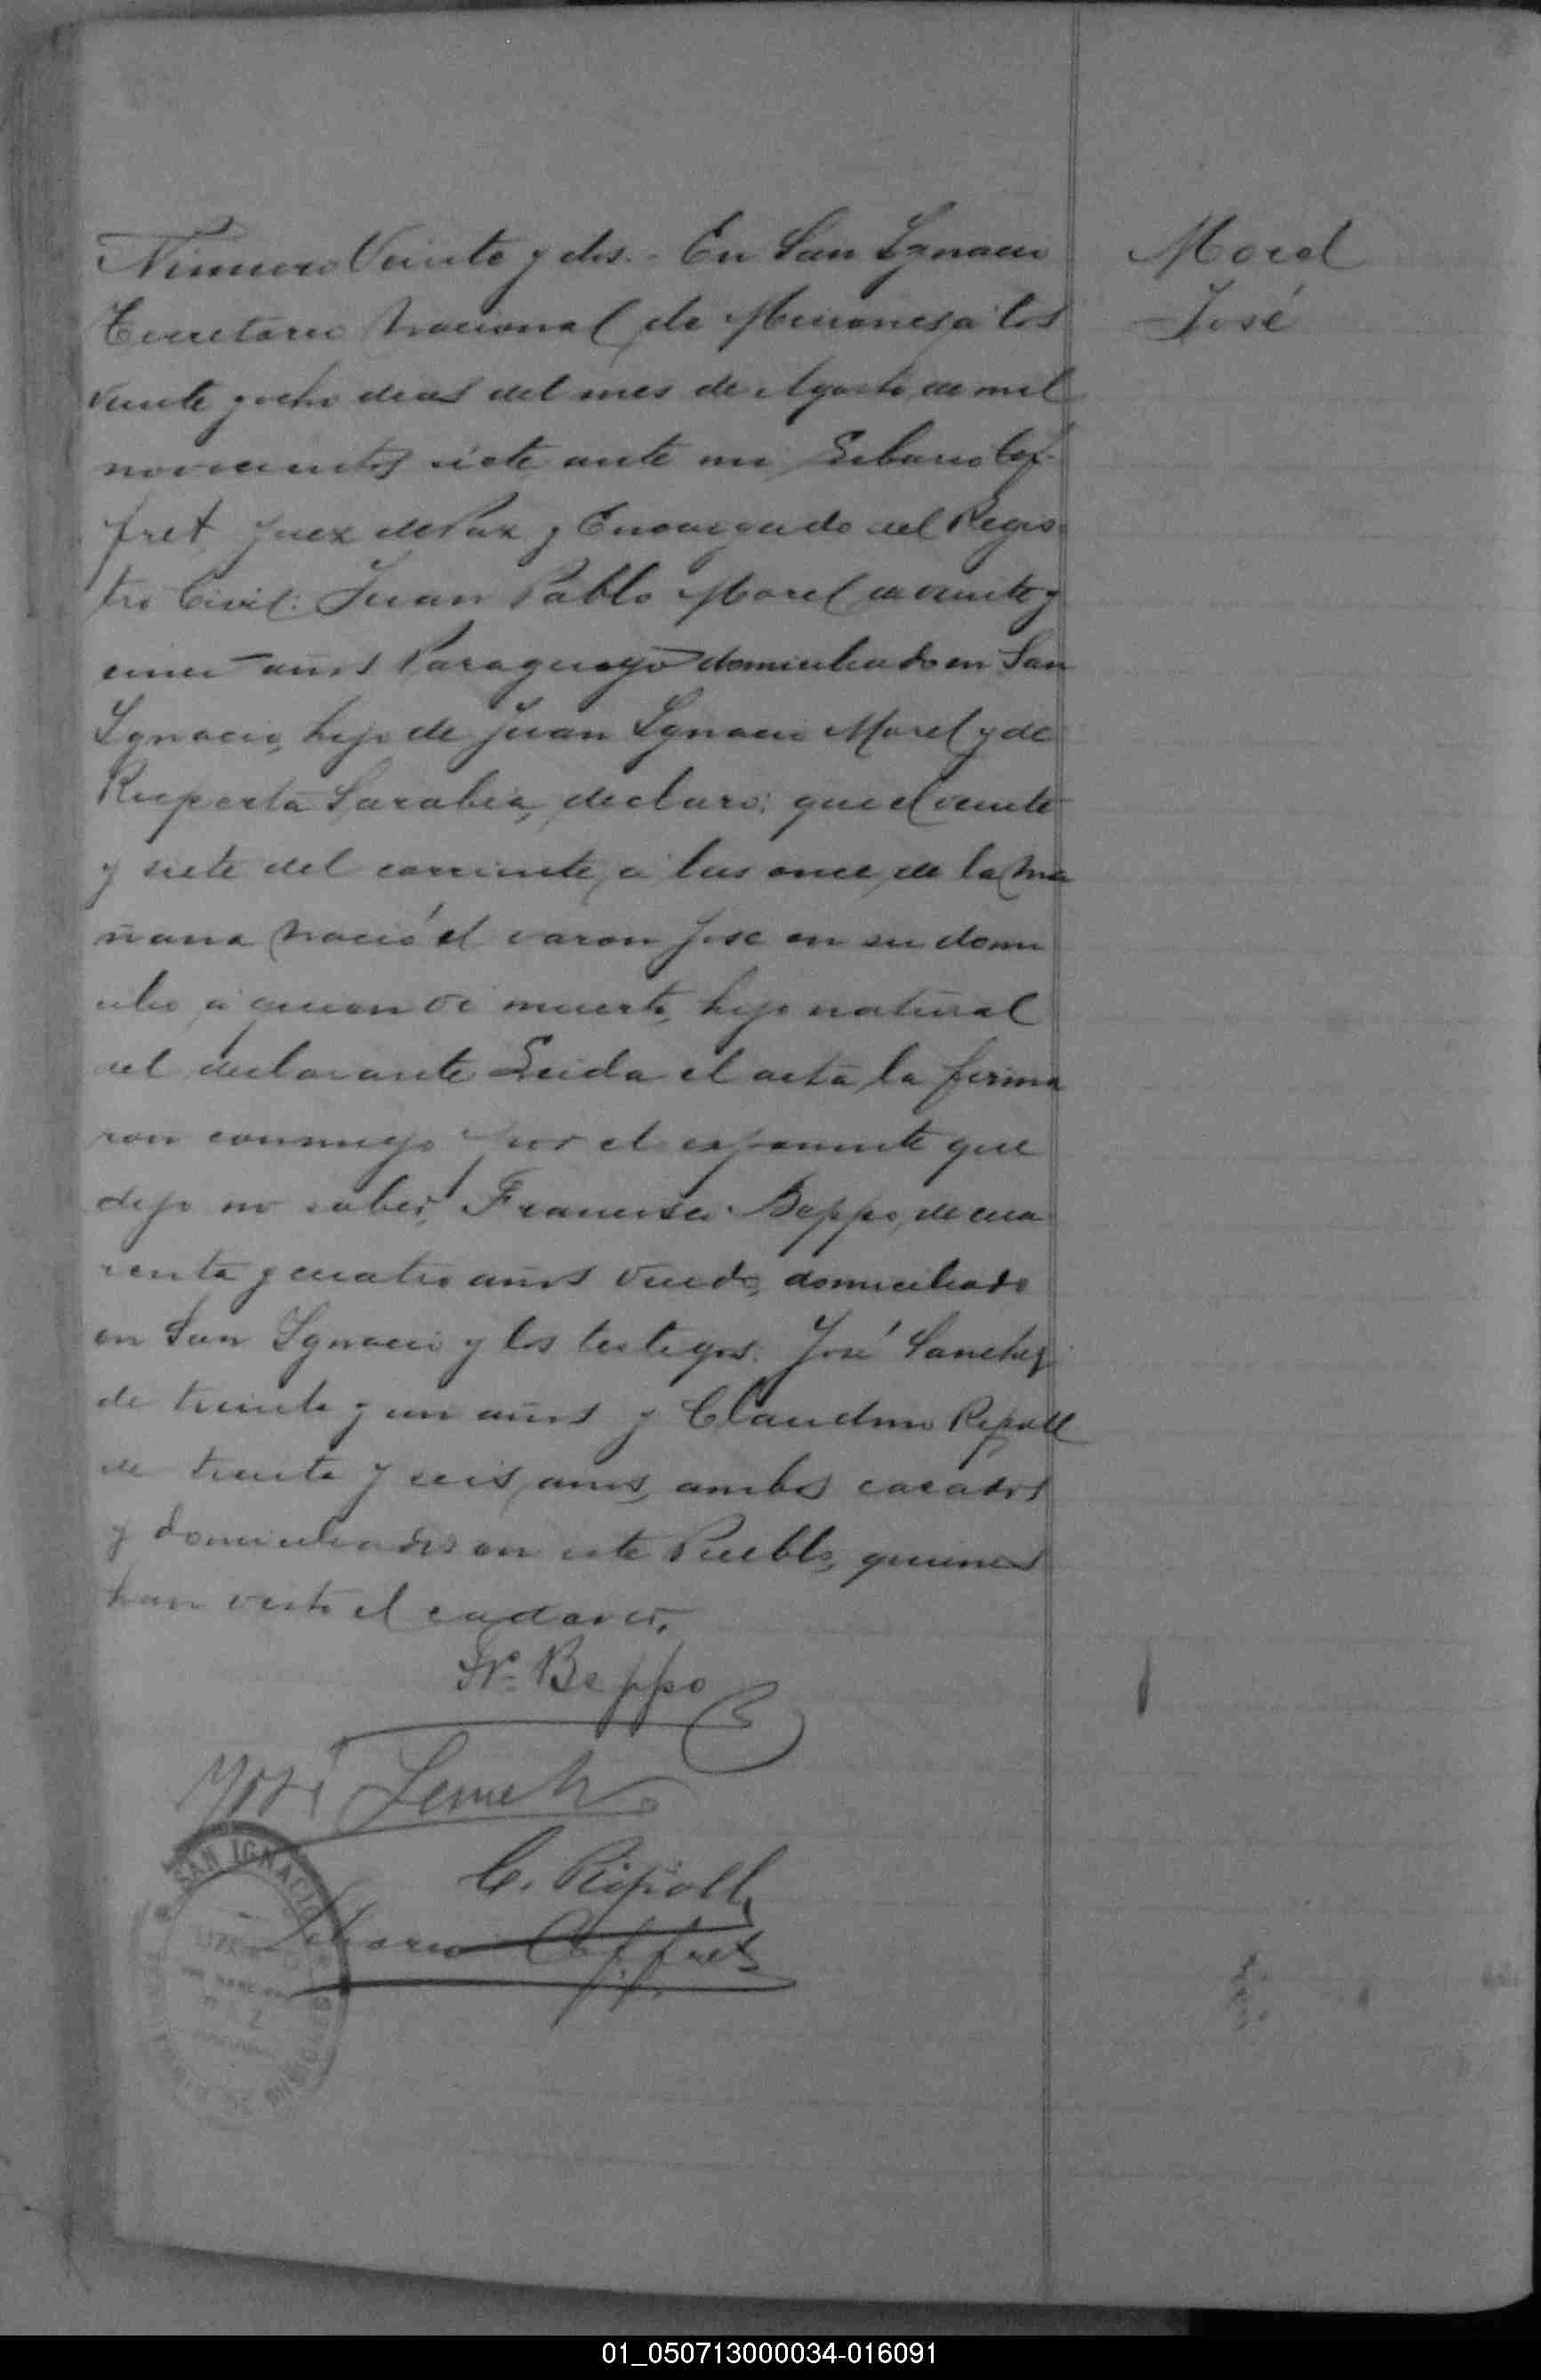 Número Veinte y dos. - En San Ignacio
Morel
José
Territorio Nacional de Misiones a los
veinte y ocho dias del mes de Agosto de mil
novecientos siete ante mi Liborio Cof-
fret Juez de Paz y Encargado del Regis-
tro Civil: Juan Pablo Morel de veinte y
cinco años Paraguayo domiciliado en San
Ignacio, hijo de Juan Ignacio Morel y de
Ruperta Sarabia, declaro: que el veinte
y siete del corriente, a las once de la ma
ñana nació el varon José en su domi
cilio, a quien vi muerto, hijo natural
del declarante Leida el acta la firma
ron conmigo por el exponente que
dijo no saber, Francisco Beppo, de cua
renta y cuatro años viudo, domiciliado
en San Ignacio y los testigos. José Sanchez
de treinta y un años y Claudino Ripoll
de treinta y seis años, ambos casados
y domiciliados en este Pueblo, quienes
han visto el cadaver.
Fr. Beppo
José
C. Ripoll
Liborio Coffret
SAN IGNACIO
MISIONES
01_050713000034-016091